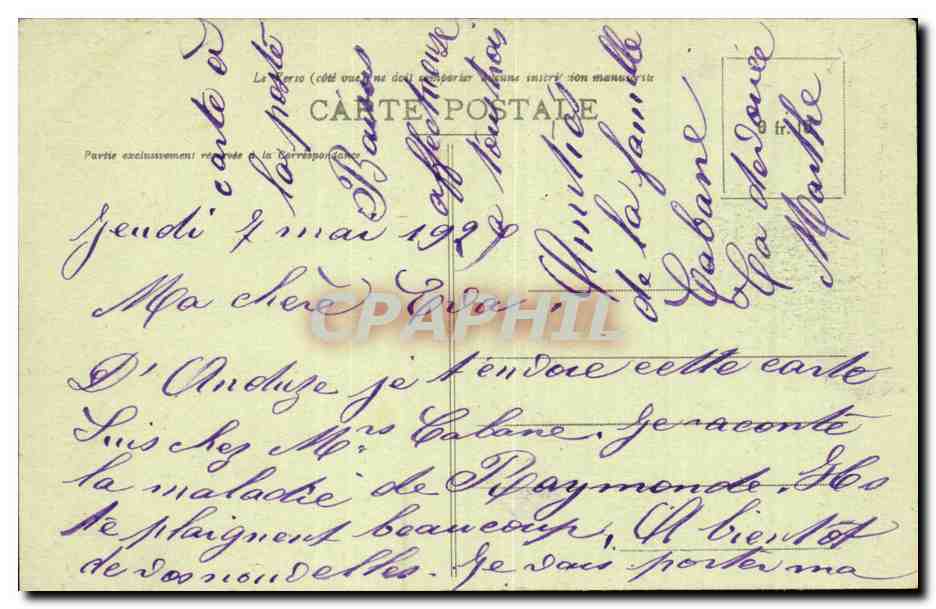 Le Verso (côté vue) ne doit comporter aucune inscription manuscrite
CARTE POSTALE
Partie exclusivement réservée à la Correspondance
0 fr. 10
Jeudi 7 mai 1925
Ma chère Eva,
D'Anduze je t'envoie cette carte
Suis chez Mrs Cabane. Je raconte
la maladie de Raymonde. Ils
te plaignent beaucoup. A bientôt
de vos nouvelles. Je vais porter ma
carte à
la poste
Baisers
affectueux
à tous trois
Amitiés
de la famille
Cabane
Ta dévouée
Marthe
CPAPHIL